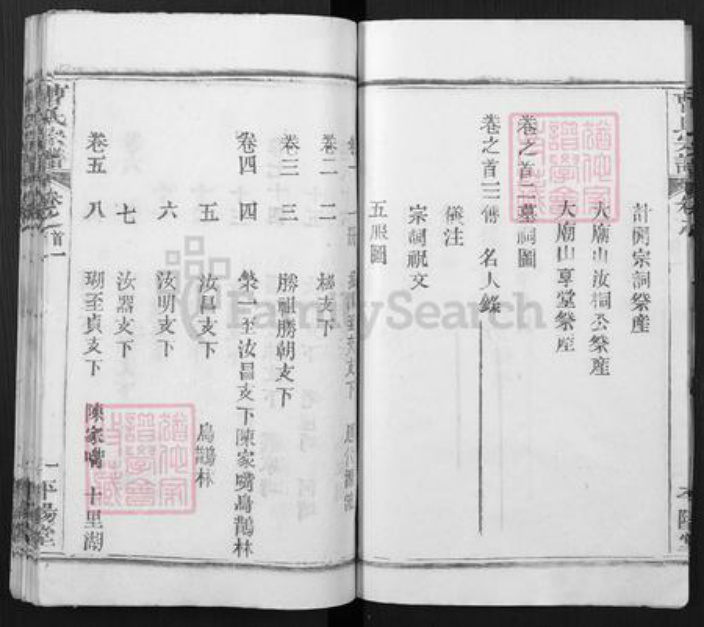 計開宗祠祭產
大廟山汝桐公祭產
大廟山享堂祭產
卷之首二墓祠圖
卷之首三傳 名人錄
儀注
宗祠祝文
五服圖
卷二 二
卷三 三 勝祖勝朝支下
卷四 四 榮一至汝昌支下陳家嘴烏鵲林
五 汝昌支下 烏鵲林
六 汝明支下
七 汝器支下
卷五 八 瑚至貞支下 陳家嘴 十里湖
曹氏宗譜 卷之首一 一 平陽堂
FamilySearch